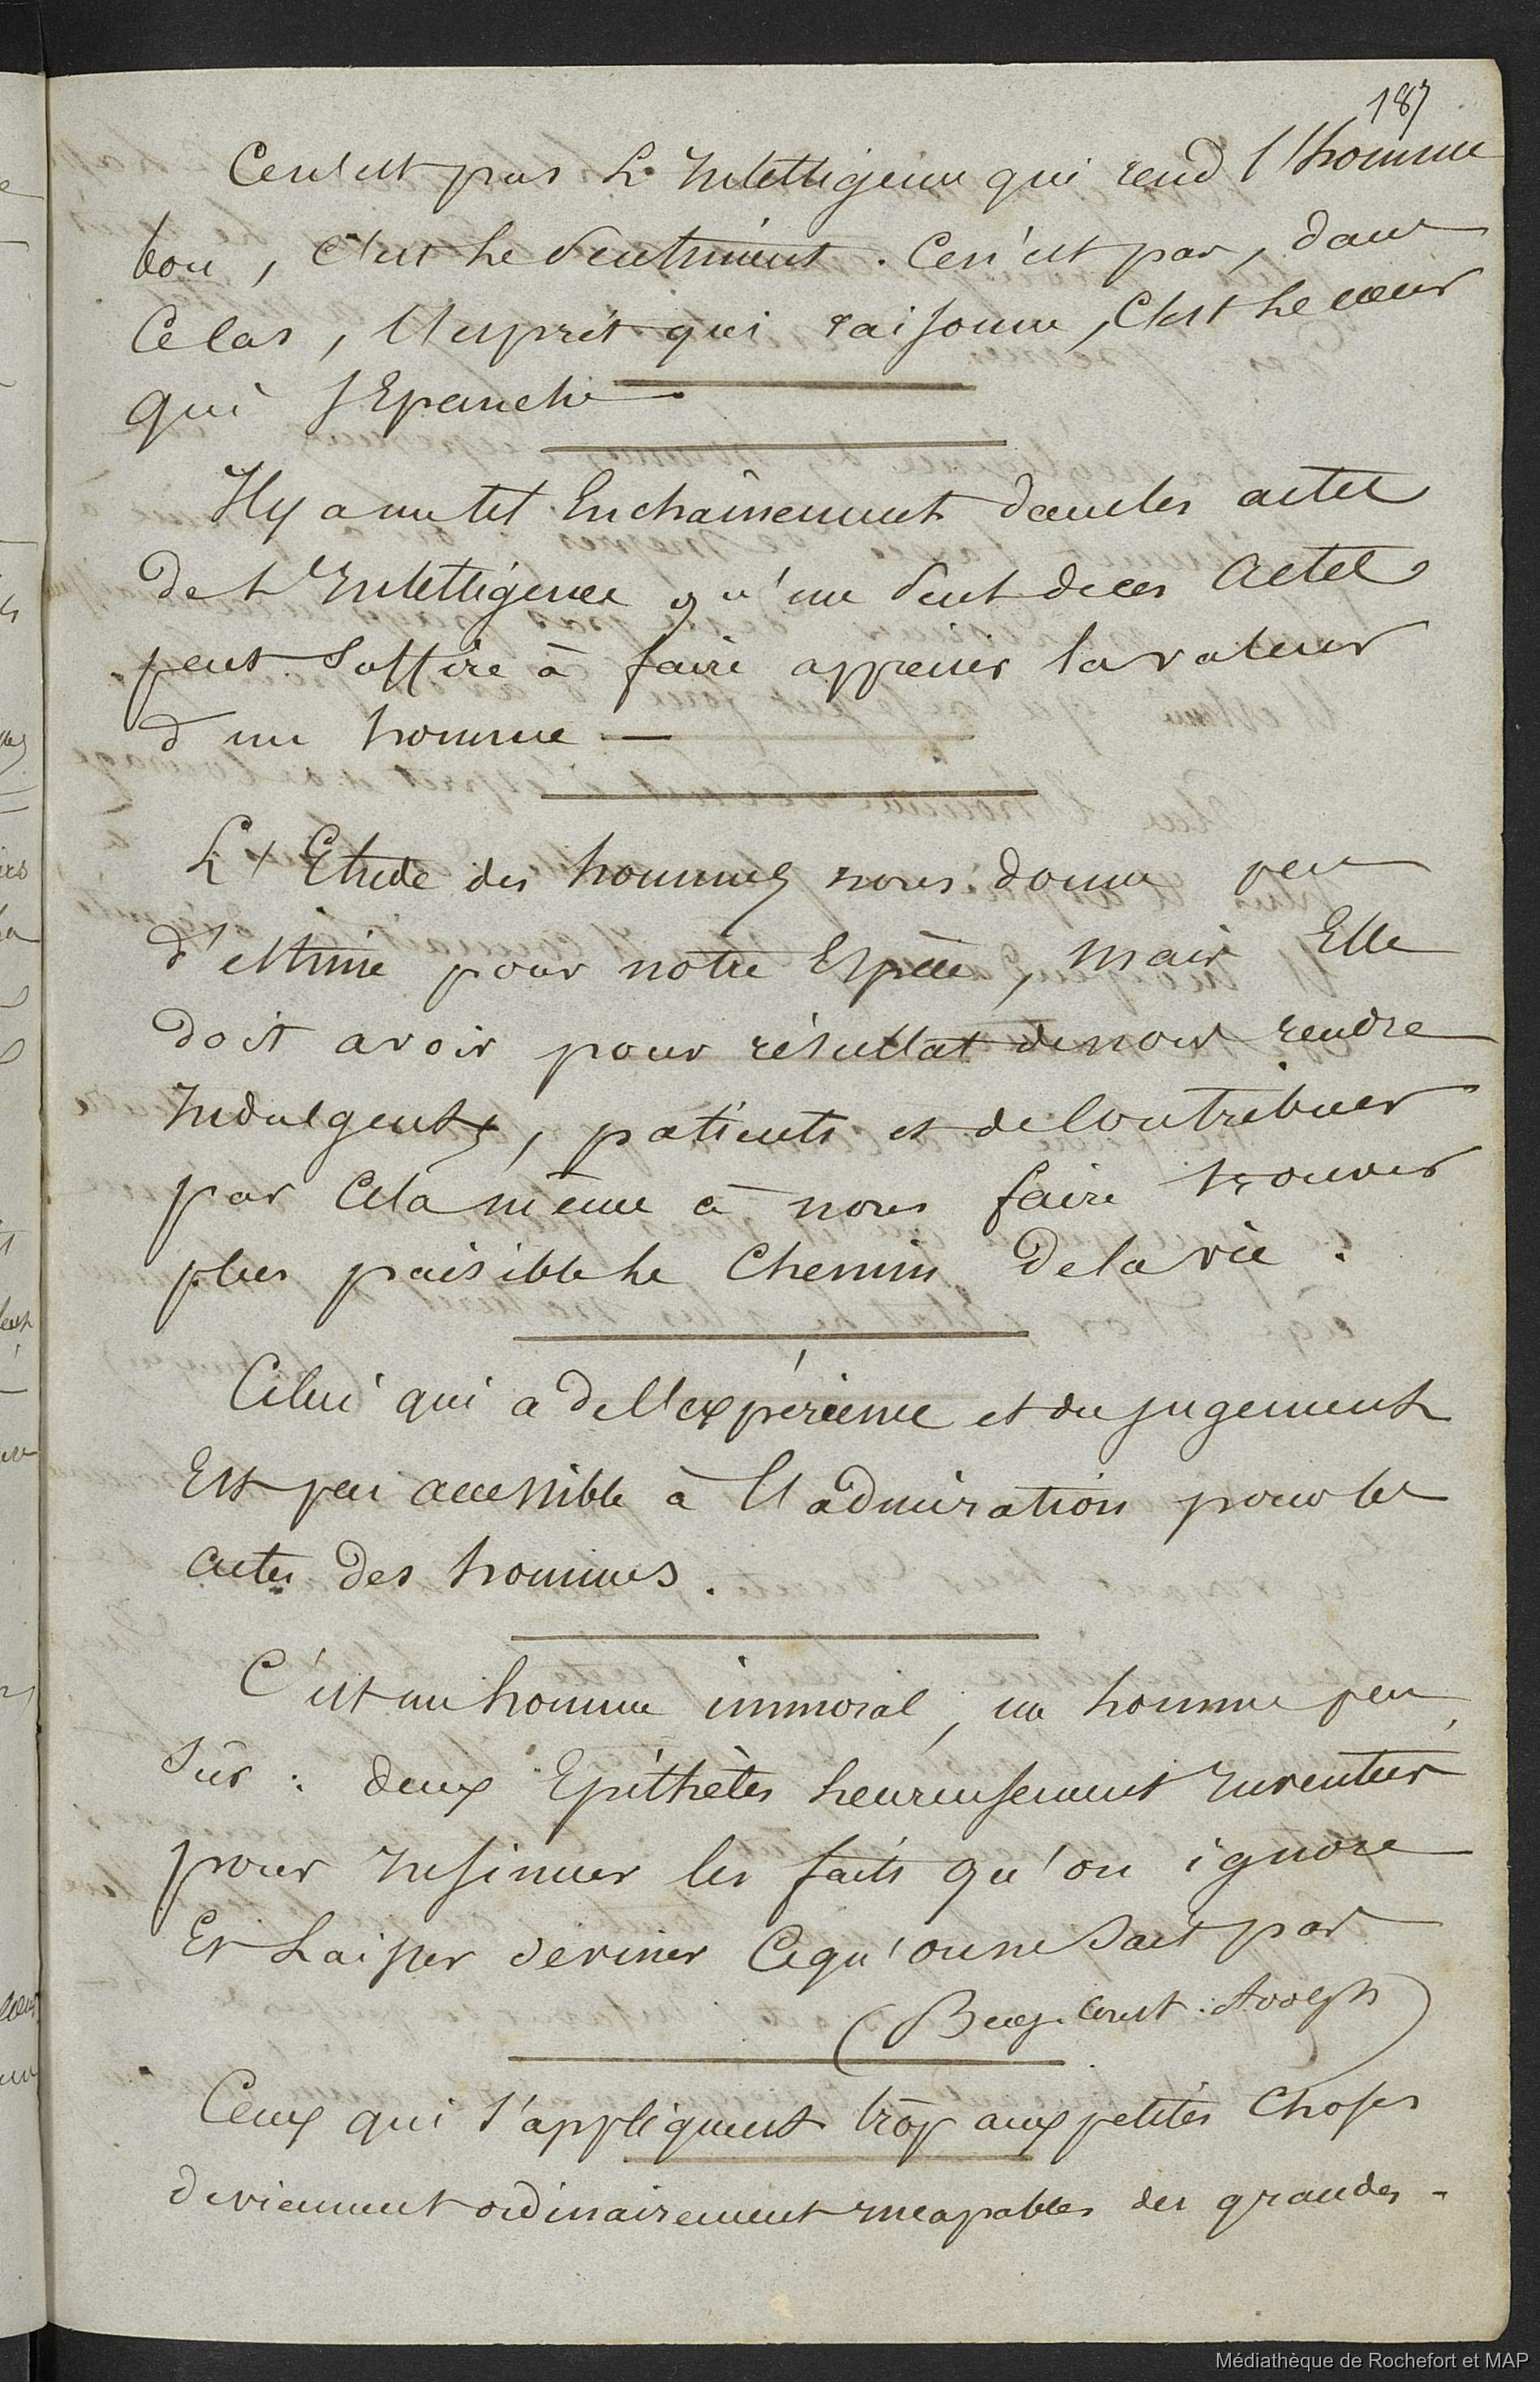 187
Ce n'est pas L'Intelligence qui rend l'homme
bon, c'est le Sentiment. Ce n'est pas, dans
Celas, l'esprit qui raisonne, C'est le cœur
qui s'Epanche.
Il y a un tel Enchaînement dans les actes
de L'Intelligence qu'un seul de ces actes
peut Suffire à faire apprecier la valeur
d'un homme —
L'Etude des hommes nous donne peu
d'estime pour notre Espèce, mais Elle
doit avoir pour résultat de nous rendre
Indulgents, patients et de Contribuer
par Cela même à nous faire trouver
plus paisible le Chemin de la vie.
Celui qui a de l'expérience et du jugement
Est peu accessible à l'admiration pour les
actes des hommes.
C'est un homme immoral, un homme peu
Sûr : deux Epithètes heureusement Inventées
pour Insinuer les faits qu'on ignore
Et Laisser deviner Ce qu'on ne Sait pas
(Benj. Const. Adolph)
Ceux qui s'appliquent trop aux petites Choses
deviennent ordinairement Incapables des grandes -
Médiathèque de Rochefort et MAP